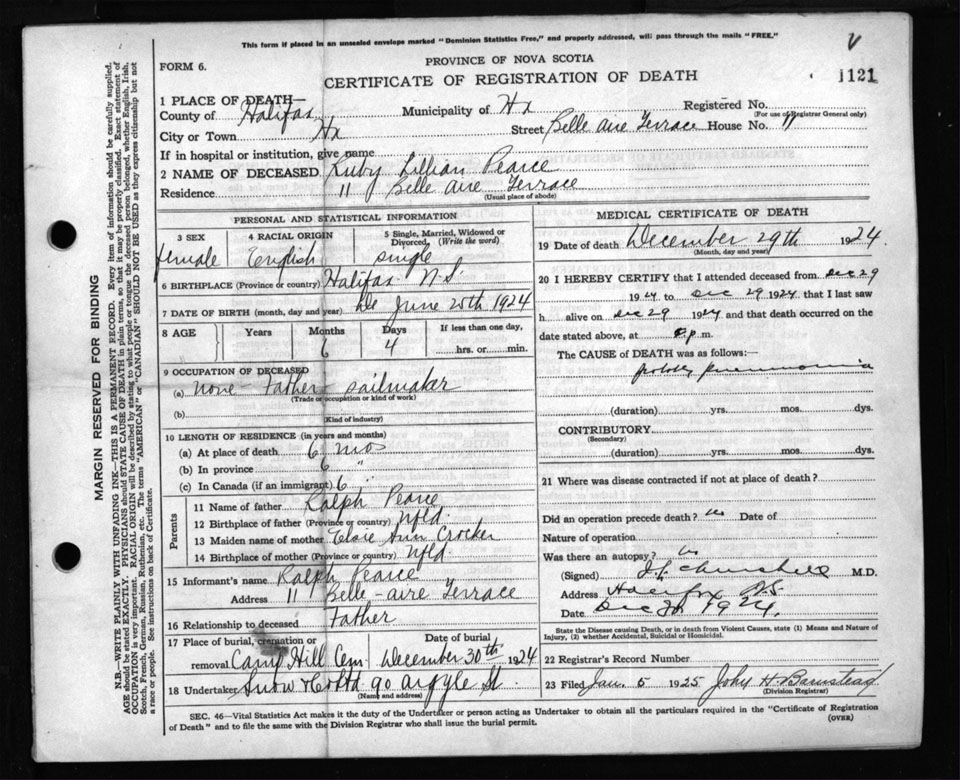 This form if placed in an unsealed envelope marked "Dominion Statistics Free," and properly addressed, will pass through the mails "FREE."
V
FORM 6.
PROVINCE OF NOVA SCOTIA
CERTIFICATE OF REGISTRATION OF DEATH
1121
1 PLACE OF DEATH—
County of Halifax Municipality of Hx Registered No.
(For use of Registrar General only)
City or Town Hx Street Belle aire Terrace House No. 11
If in hospital or institution, give name
2 NAME OF DECEASED Ruby Lillian Pearce
Residence 11 Belle Aire Terrace
(Usual place of abode)
PERSONAL AND STATISTICAL INFORMATION
3 SEX 4 RACIAL ORIGIN 5 Single, Married, Widowed or Divorced, (Write the word)
female English single
6 BIRTHPLACE (Province or country) Halifax N.S.
7 DATE OF BIRTH (month, day and year) June 25th 1924
8 AGE Years Months Days If less than one day,
6 4 hrs. or min.
9 OCCUPATION OF DECEASED
(a) none - Father sailmaker
(Trade or occupation or kind of work)
(b)
(Kind of industry)
10 LENGTH OF RESIDENCE (in years and months)
(a) At place of death 6 mos
(b) In province 6 "
(c) In Canada (if an immigrant) 6 "
Parents
11 Name of father Ralph Pearce
12 Birthplace of father (Province or country) Nfld.
13 Maiden name of mother Ann Crocker
14 Birthplace of mother (Province or country) Nfld.
15 Informant's name Ralph Pearce
Address 11 Belle-aire Terrace
16 Relationship to deceased Father
17 Place of burial, cremation or removal Camp Hill Cem Date of burial December 30th 1924
18 Undertaker Snow & Co Ltd 90 Argyle St.
(Name and address)
MEDICAL CERTIFICATE OF DEATH
19 Date of death December 29th 1924.
(Month, day and year)
20 I HEREBY CERTIFY that I attended deceased from Dec 29
1924 to Dec 29 1924 that I last saw
h alive on Dec 29 1924 and that death occurred on the
date stated above, at p.m.
The CAUSE of DEATH was as follows:—
probably pneumonia
(duration) yrs. mos. dys.
CONTRIBUTORY
(Secondary)
(duration) yrs. mos. dys.
21 Where was disease contracted if not at place of death?
Did an operation precede death? No Date of
Nature of operation
Was there an autopsy? No
(Signed) Churchill M.D.
Address Halifax N.S.
Date Dec 30 1924.
State the Disease causing Death, or in death from Violent Causes, state (1) Means and Nature of Injury, (2) whether Accidental, Suicidal or Homicidal.
22 Registrar's Record Number
23 Filed Jan. 5 1925 John H. Barnstead
(Division Registrar)
SEC. 46—Vital Statistics Act makes it the duty of the Undertaker or person acting as Undertaker to obtain all the particulars required in the "Certificate of Registration
of Death" and to file the same with the Division Registrar who shall issue the burial permit.
(OVER)
MARGIN RESERVED FOR BINDING
N.B.—WRITE PLAINLY WITH UNFADING INK—THIS IS A PERMANENT RECORD. Every item of information should be carefully supplied.
AGE should be stated EXACTLY. PHYSICIANS should STATE CAUSE OF DEATH in plain terms, so that it may be properly classified. Exact statement of
OCCUPATION is very important. RACIAL ORIGIN will be described by stating to what people or tongue the deceased person belonged, whether English, Irish,
Scotch, French, German, Russian, Ruthenian, etc. The terms "AMERICAN" or "CANADIAN" SHOULD NOT BE USED as they express citizenship but not
a race or people. See instructions on back of Certificate.